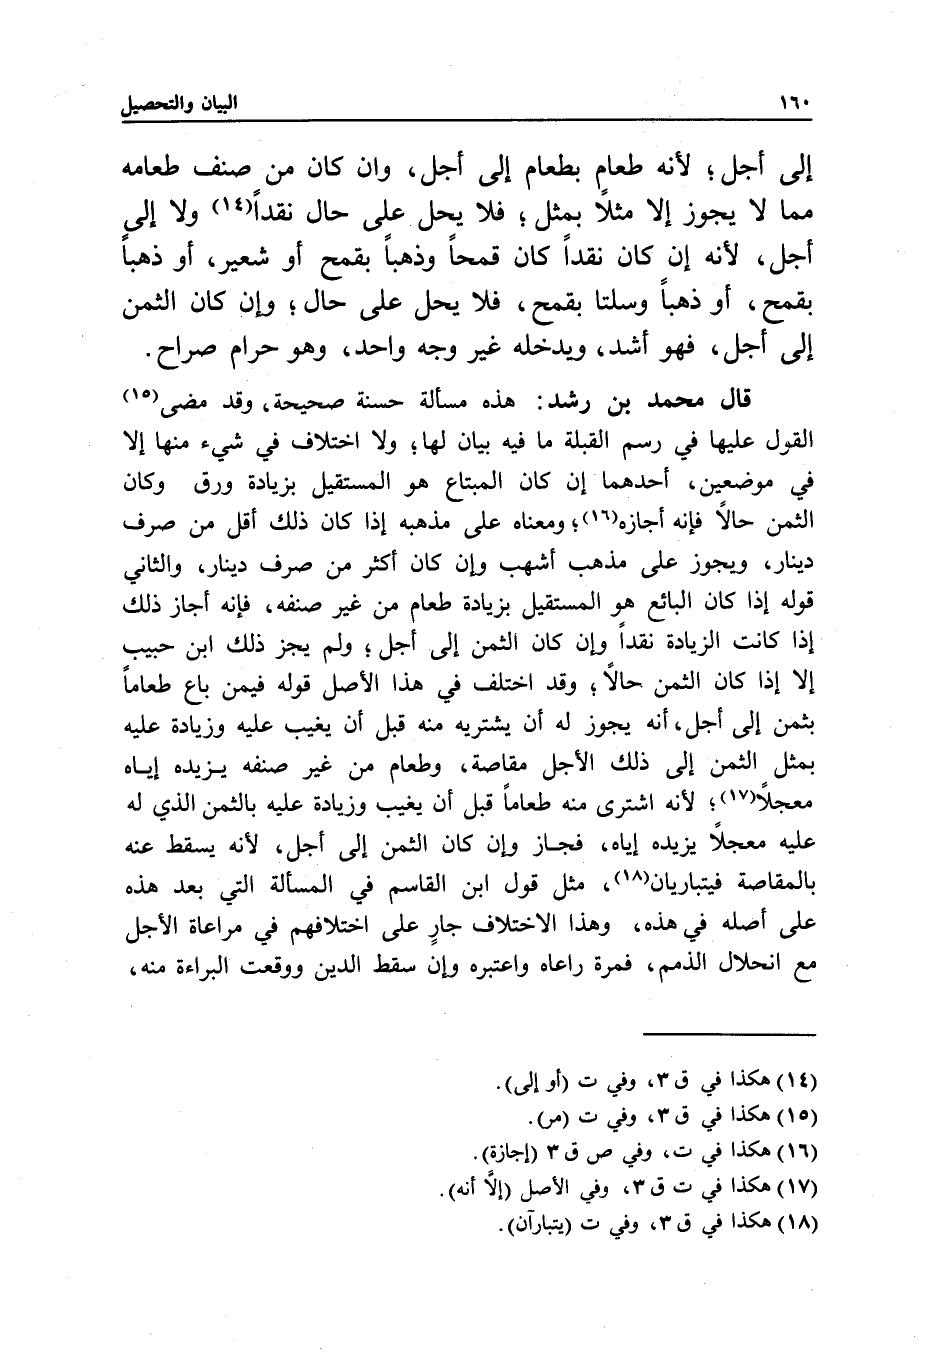 ١٦٠ البيان والتحصيل
إلى أجل؛ لأنه طعام بطعام إلى أجل، وان كان من صنف طعامه
مما لا يجوز إلا مثلاً بمثل؛ فلا يحل على حال نقداً(١٤) ولا إلى
أجل، لأنه إن كان نقداً كان قمحاً وذهباً بقمح أو شعير، أو ذهباً
بقمح، أو ذهباً وسلتا بقمح، فلا يحل على حال؛ وإن كان الثمن
إلى أجل، فهو أشد، ويدخله غير وجه واحد، وهو حرام صراح.
قال محمد بن رشد: هذه مسألة حسنة صحيحة، وقد مضى(١٥)
القول عليها في رسم القبلة ما فيه بيان لها؛ ولا اختلاف في شيء منها إلا
في موضعين، أحدهما إن كان المبتاع هو المستقيل بزيادة ورق وكان
الثمن حالاً فإنه أجازه(١٦)؛ ومعناه على مذهبه إذا كان ذلك أقل من صرف
دينار، ويجوز على مذهب أشهب وإن كان أكثر من صرف دينار، والثاني
قوله إذا كان البائع هو المستقيل بزيادة طعام من غير صنفه، فإنه أجاز ذلك
إذا كانت الزيادة نقداً وإن كان الثمن إلى أجل؛ ولم يجز ذلك ابن حبيب
إلا إذا كان الثمن حالاً؛ وقد اختلف في هذا الأصل قوله فيمن باع طعاماً
بثمن إلى أجل، أنه يجوز له أن يشتريه منه قبل أن يغيب عليه وزيادة عليه
بمثل الثمن إلى ذلك الأجل مقاصة، وطعام من غير صنفه يزيده إياه
معجلاً(١٧)؛ لأنه اشترى منه طعاماً قبل أن يغيب وزيادة عليه بالثمن الذي له
عليه معجلاً يزيده إياه، فجاز وإن كان الثمن إلى أجل، لأنه يسقط عنه
بالمقاصة فيتباريان(١٨)، مثل قول ابن القاسم في المسألة التي بعد هذه
على أصله في هذه، وهذا الاختلاف جارٍ على اختلافهم في مراعاة الأجل
مع انحلال الذمم، فمرة راعاه واعتبره وإن سقط الدين ووقعت البراءة منه،
(١٤) هكذا في ق ٣، وفي ت (أو إلى).
(١٥) هكذا في ق ٣، وفي ت (مر).
(١٦) هكذا في ت، وفي ص ق ٣ (إجازة).
(١٧) هكذا في ت ق ٣، وفي الأصل (إلاَّ أنه).
(١٨) هكذا في ق ٣، وفي ت (يتبارآن).